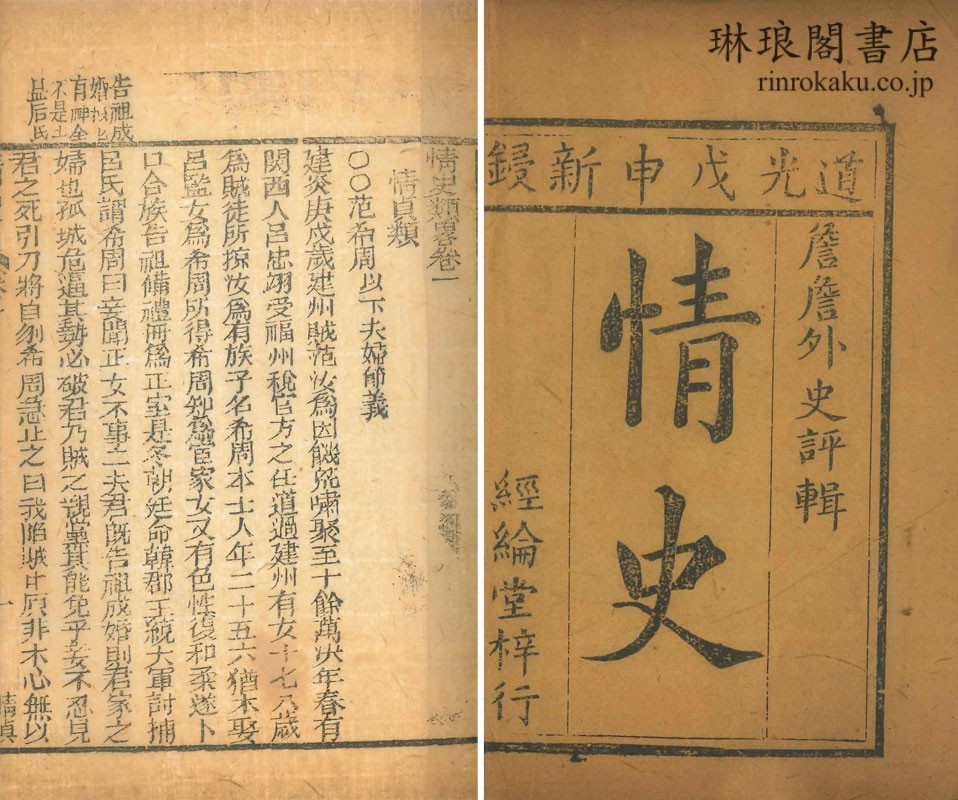 琳琅閣書店
rinrokaku.co.jp
道光戊申新鋟
詹詹外史評輯
情史
經綸堂梓行
情史類畧卷一
情貞類
○○范希周 以下夫婦節義
建炎庚戌歲建州賊范汝為因饑荒嘯聚至十餘萬次年春有
関西人呂忠翊受福州稅官方之任道過建州有女十七八歲
為賊徒所掠汝為有族子名希周本士人年二十五六猶未娶
呂監女為希周所得希周知為宦家女又有色性復和柔遂卜
日合族告祖備禮冊為正室是冬朝廷命韓郡王統大軍討捕
呂氏謂希周曰妾聞正女不事二夫君既告祖成婚則君家之
婦也孤城危逼其勢必破君乃賊之親黨其能免乎妾不忍見
君之死引刀將自刎希周急止之曰我陷賊中原非本心無以
告祖成
不是
情貞
一